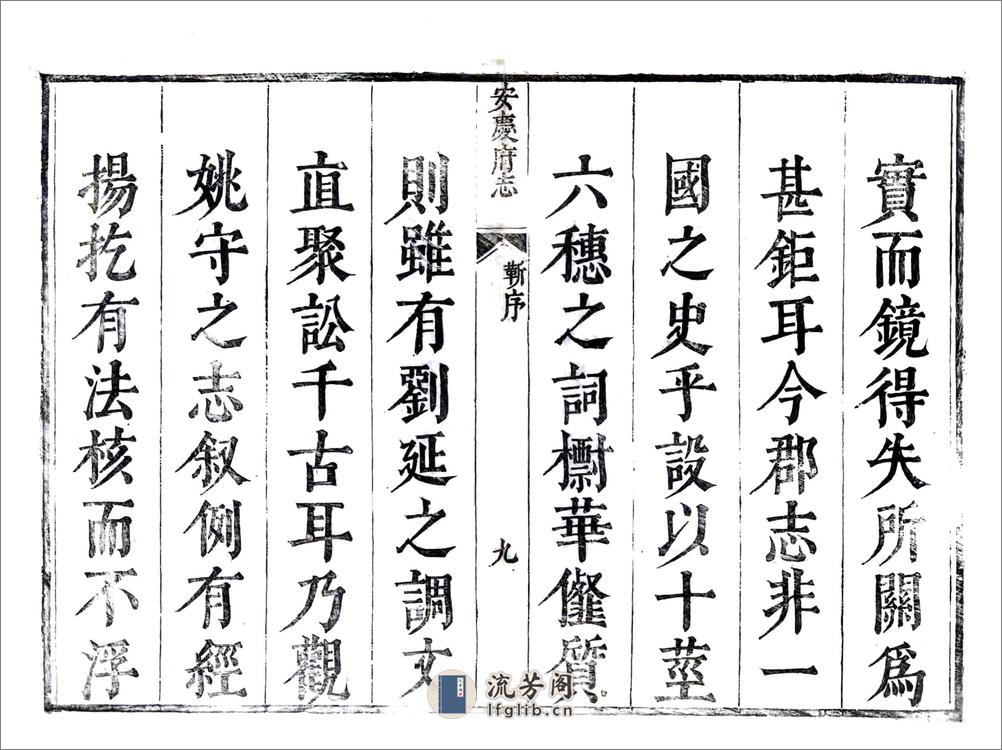 實而鏡得失所關爲
甚鉅耳今郡志非一
國之史乎設以十莖
六穗之詞華質
安慶府志
靳序
九
則雖有劉延之調文
直聚訟千古耳乃觀
姚守之志叙例有經
揚扢有法核而不浮
流芳阁
lfglib.cn